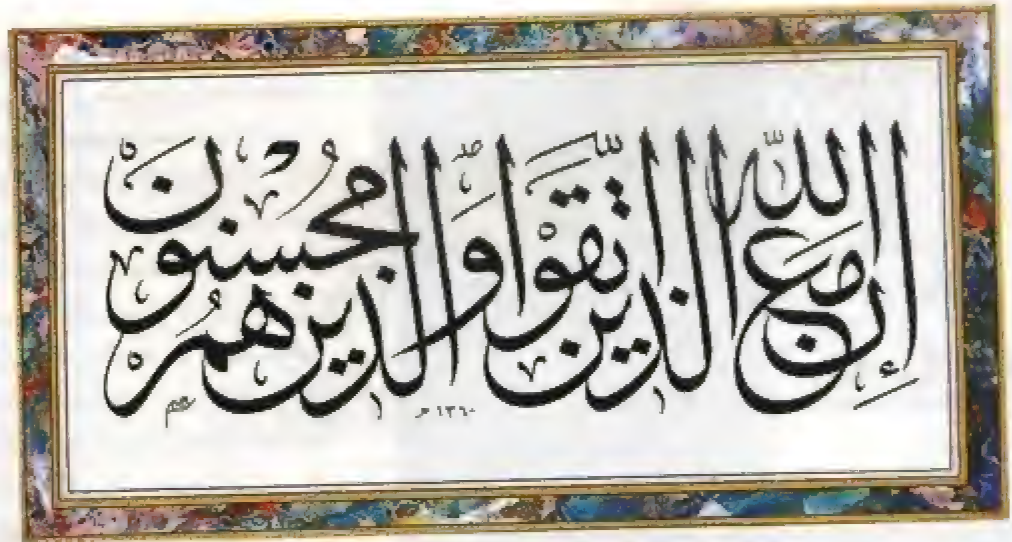 إِنَّ اللّٰهَ مَعَ الَّذِينَ اتَّقَوا وَّالَّذِينَ هُمْ مُحْسِنُونَ
١٣٦٠ هـ